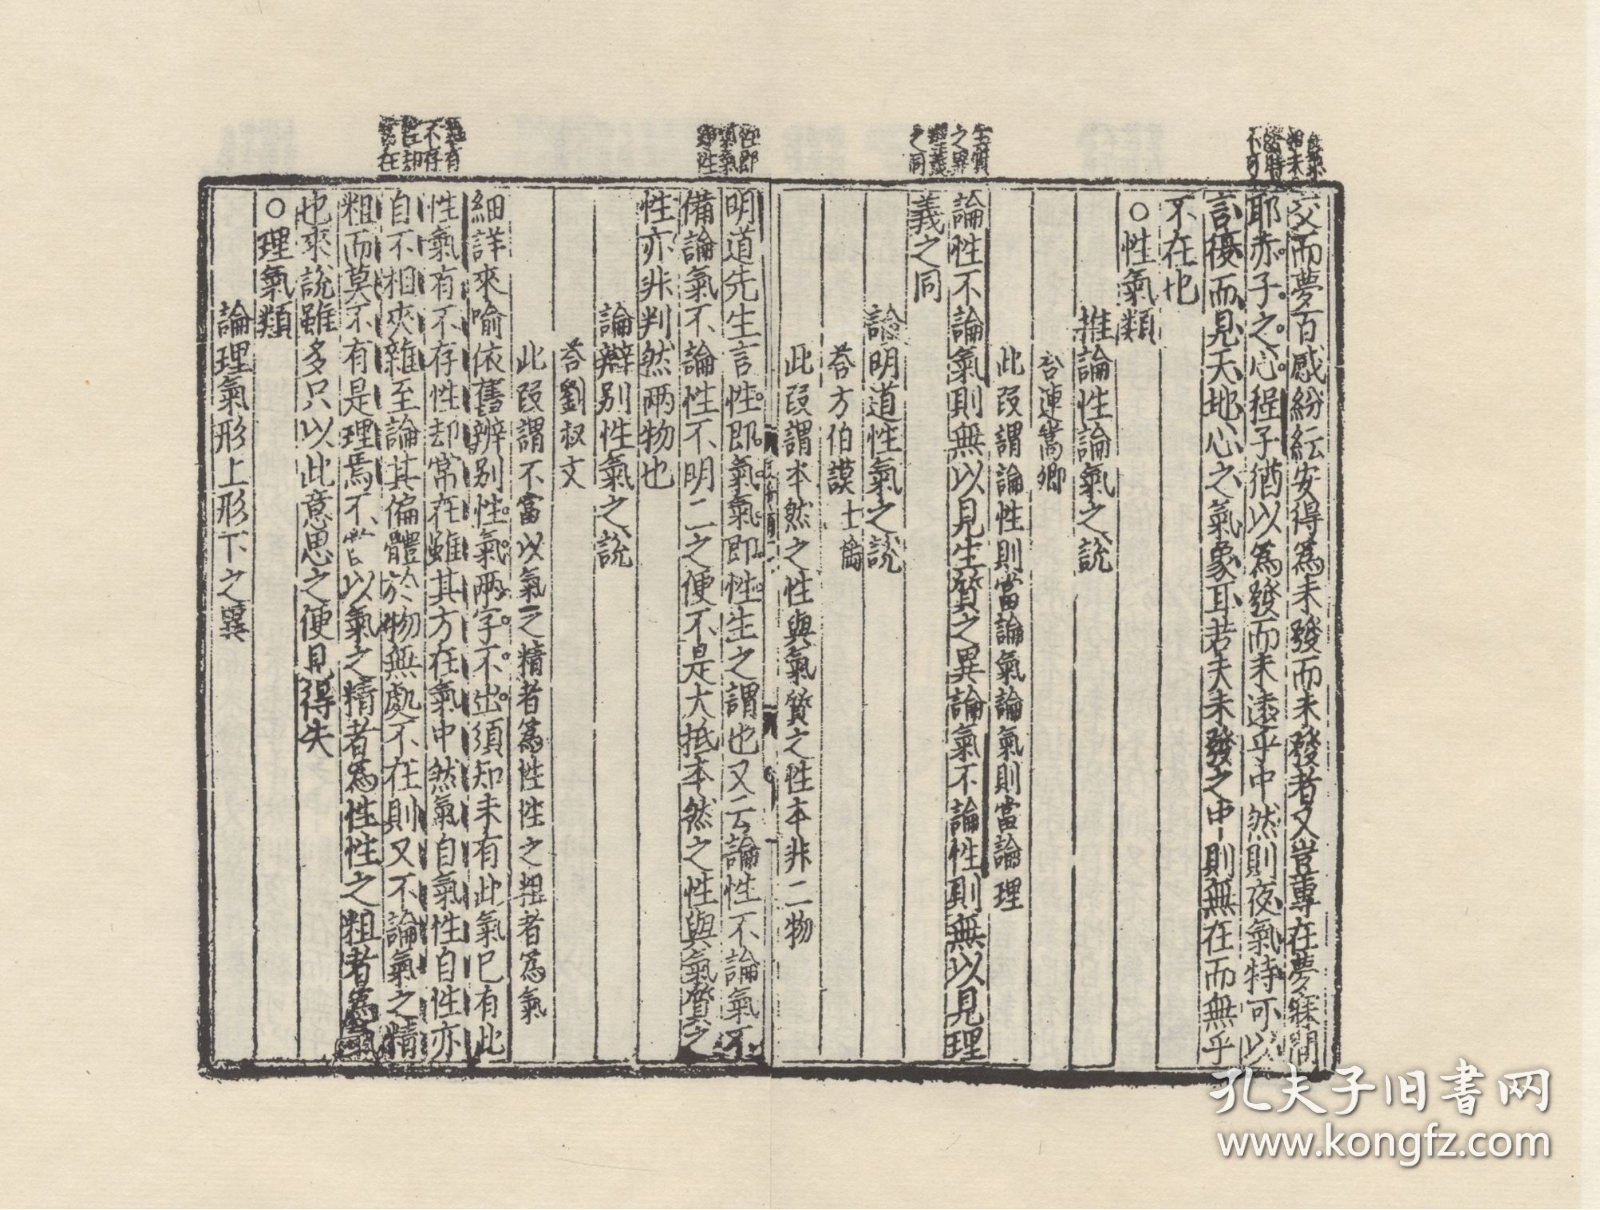 交而夢百感紛紜安得爲未發而未發者又豈專在夢寐間
耶赤子之心程子猶以爲發而未遠乎中然則夜氣特可以
言復而見天地心之氣象耳若夫未發之中則無在而無乎
不在也
○性氣類
推論性論氣之說
荅連嵩卿
此段謂論性則當論氣論氣則當論理
論性不論氣則無以見生質之異論氣不論性則無以見理
義之同
論明道性氣之說
荅方伯謨士繇
此段謂本然之性與氣質之性本非二物
明道先生言性即氣氣即性生之謂也又云論性不論氣不
備論氣不論性不明二之便不是大抵本然之性與氣質之
性亦非判然兩物也
論辯別性氣之說
荅劉叔文
此段謂不當以氣之精者爲性性之粗者爲氣
細詳來喻依舊辨別性氣兩字不出須知未有此氣已有此
性氣有不存性却常在雖其方在氣中然氣自氣性自性亦
自不相夾雜至論其偏體於物無處不在則又不論氣之精
粗而莫不有是理焉不當以氣之精者爲性性之粗者爲氣
也來說雖多只以此意思之便見得失
○理氣類
論理氣形上形下之異
生質
之異
理義
之同
性即
氣氣
即性
氣有
不存
性却
常在
孔夫子旧书网
www.kongfz.com